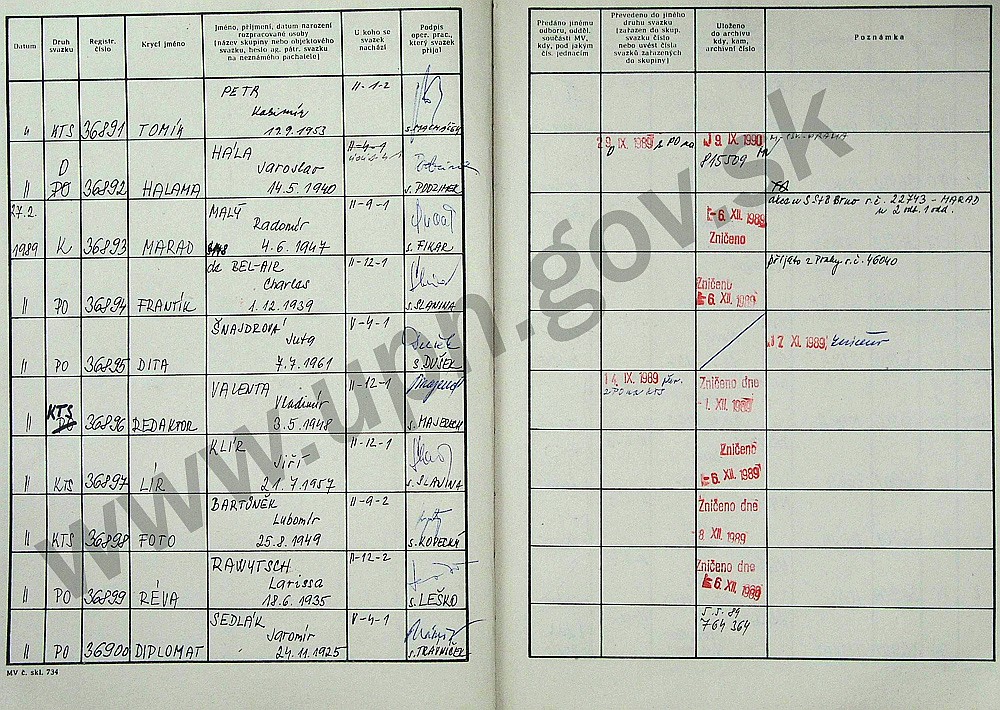 Datum
Druh svazku
Registr. číslo
Krycí jméno
Jméno, příjmení, datum narození
rozpracované osoby
(název skupiny nebo objektového
svazku, heslo ag. pátr. svazku
na neznámého pachatele)
U koho se
svazek
nachází
Podpis
oper. prac.,
který svazek
přijal
Předáno jinému
odboru, odděl.
součásti MV,
kdy, pod jakým
čís. jednacím
Převedeno do jiného
druhu svazku
(zařazen do skup.
svazku číslo
nebo uvést čísla
svazků zařazených
do skupiny)
Uloženo
do archivu
kdy, kam,
archivní číslo
Poznámka
PETR II-1-2
Kasimír
" KTS 36891 TOMÍK 12.9.1953
D HÁLA II-4-1 IX. 1989 19. IX. 1990
Jaroslav 815509
II PO 36892 HALAMA 14.5.1940 s. PODZIMEK
27.2. MALÝ II-9-1 akce u S StB Brno r.č. 22743 - MARAD
Radomír -6. XII. 1989
1989 K 36893 MARAD 4.6.1947 s. FIKAR Zničeno
de BEL-AIR II-12-1 přijato z Prahy r.č. 46040
Charles Zničeno
II PO 36894 FRANTÍK 1.12.1939 s. SLANINA -6. XII. 1989
ŠNAJDROVÁ V-4-1
Juta 17 XI. 1989
II PO 36895 DITA 7.7.1961 s. DUŠEK
VALENTA II-12-1 14. IX. 1989 Zničeno dne
KTS Vladimír z PO na KTS -1. XII. 1989
II PO 36896 REDAKTOR 3.5.1948 s. MAJERECH
KLÍR II-12-1 Zničeno
Jiří -6. XII. 1989
II KTS 36897 LÍR 21.7.1957 s. SLANINA
BARTŮNĚK II-9-2 Zničeno dne
Lubomír -8 XII. 1989
II KTS 36898 FOTO 25.8.1949 s. KOPECKÝ
RAWYTSCH II-12-2 Zničeno dne
Larissa -6. XII. 1989
II PO 36899 RÉVA 18.6.1935 s. LEŠKO
SEDLÁK V-4-1 5.5.89
Jaromír 764 364
II PO 36900 DIPLOMAT 24.11.1925 s. TRÁVNÍČEK
MV č. skl. 734
www.upn.gov.sk